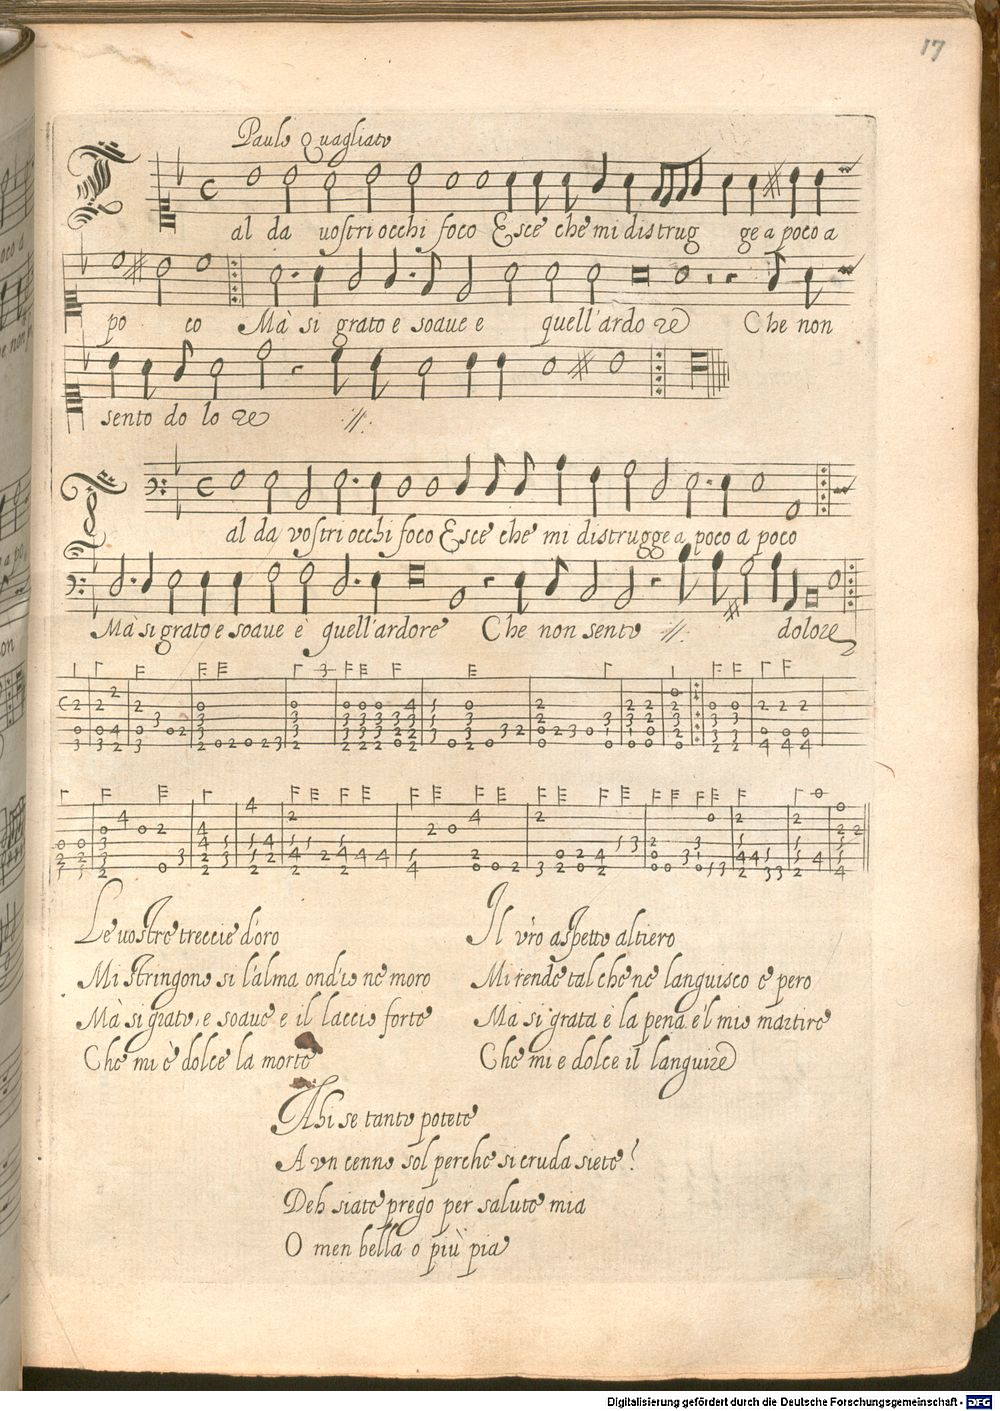 17
Paulo Quagliato
Tal da vostri occhi foco Esce che mi distrug ge a poco a
po co Mà si grato e soaue e quell'ardo re Che non
sento do lo re //.
Tal da vostri occhi foco Esce che mi distrugge a poco a poco
Mà si grato e soaue è quell'ardore Che non sento //. dolore
Le uostre treccie d'oro
Mi stringono si l'alma ond'io ne moro
Mà si grato, e soaue e il laccio forte
Che mi è dolce la morte
Il v'ro aspetto altiero
Mi rende tal che ne languisco e pero
Ma si grata è la pena e'l mio martire
Che mi e dolce il languire
Ahi se tanto potete
A vn cenno sol perche si cruda siete?
Deh siate prego per salute mia
O men bella o più pia
Digitalisierung gefördert durch die Deutsche Forschungsgemeinschaft - DFG